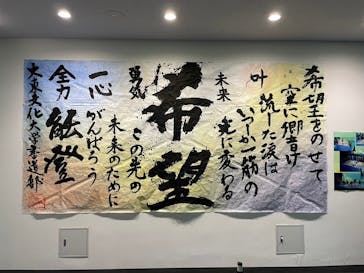 希望をのせて
空に響け
叶
流した涙は
いつか一筋の
光に変わる
未来
希望
勇気
この光の
未来のために
がんばろう
一心
全力
能登
大東文化大学書道部